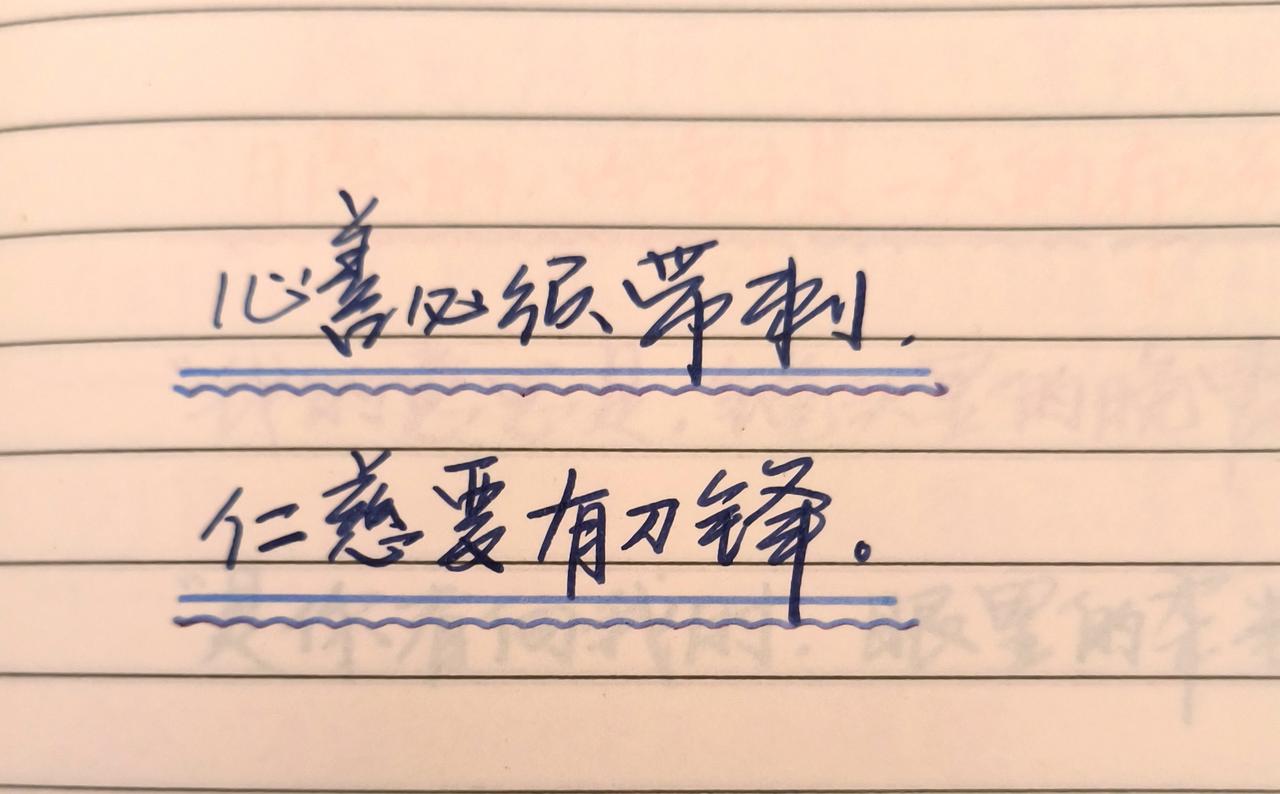 心善必须带刺.
仁慈要有刀锋。